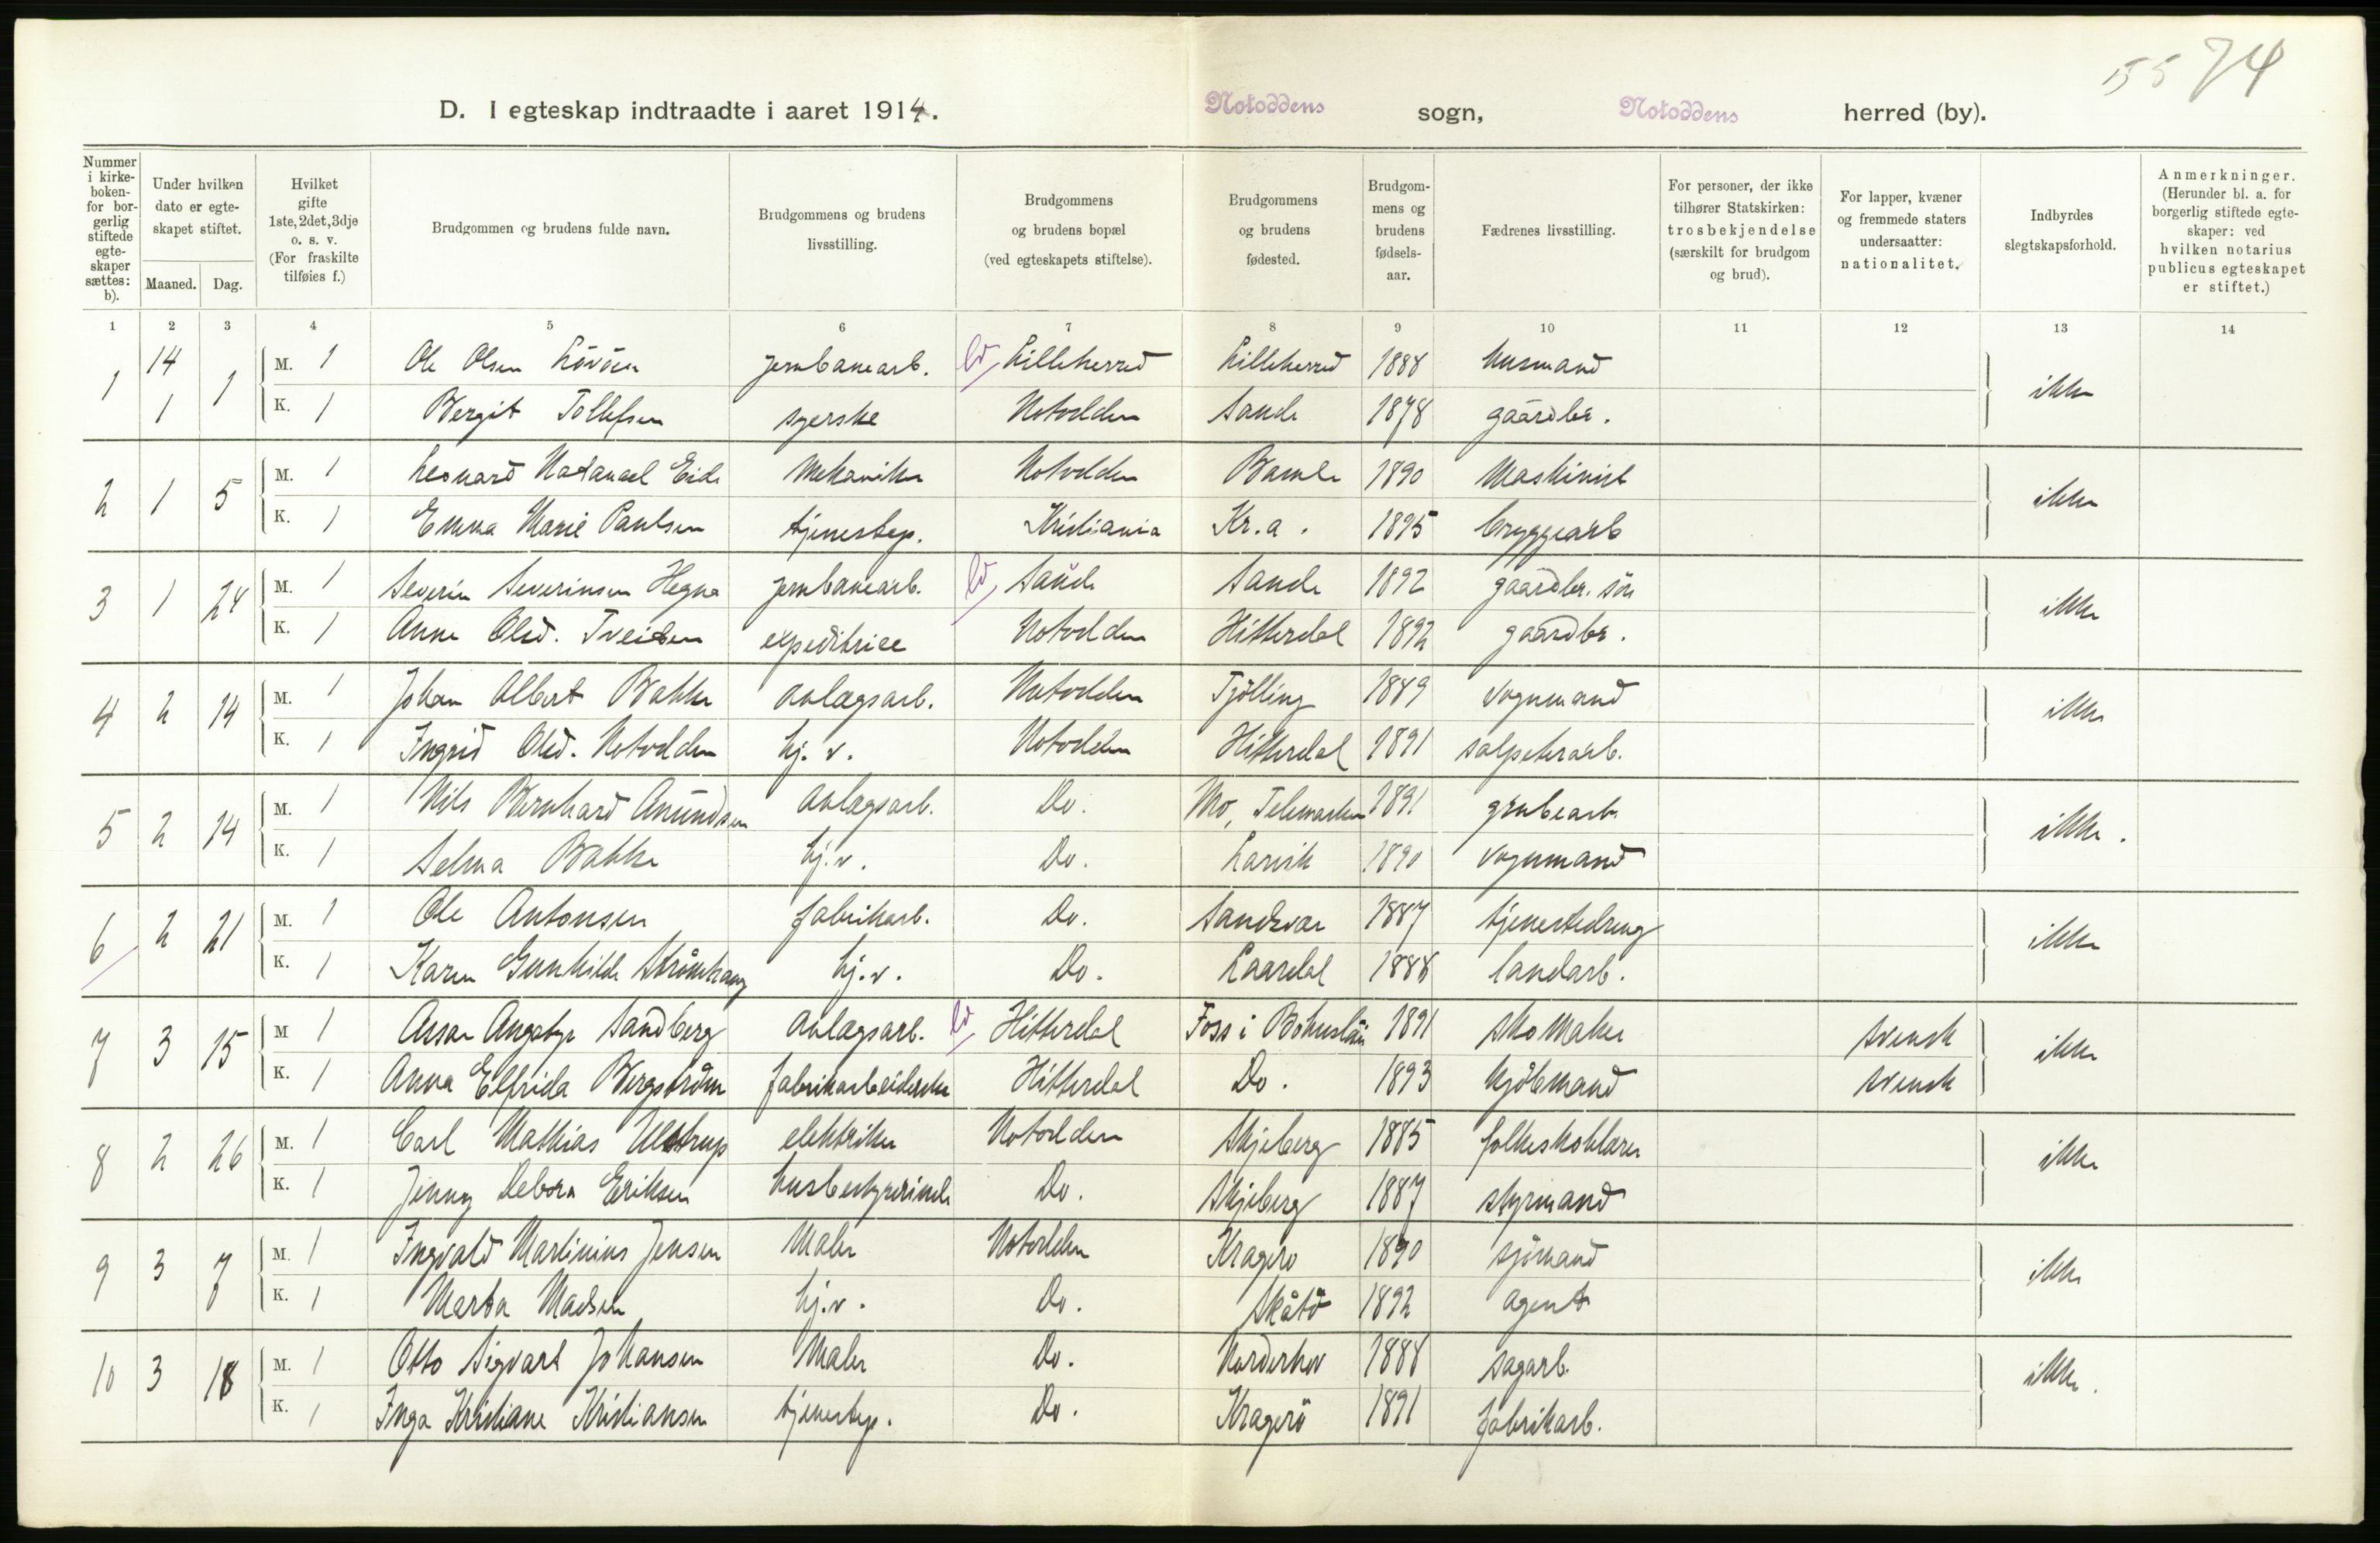 55 74
D. I egteskap indtraadte i aaret 1914. Notoddens sogn, Notoddens herred (by).
Nummer i kirke-boken- for bor-gerlig stiftede egte-skaper sættes: b). | Under hvilken dato er egte-skapet stiftet. Maaned. Dag. | Hvilket gifte 1ste, 2det, 3dje o. s. v. (For fraskilte tilføies f.) | Brudgommen og brudens fulde navn. | Brudgommens og brudens livsstilling. | Brudgommens og brudens bopæl (ved egteskapets stiftelse). | Brudgommens og brudens fødested. | Brudgom-mens og brudens fødsels-aar. | Fædrenes livsstilling. | For personer, der ikke tilhører Statskirken: trosbekjendelse (særskilt for brudgom og brud). | For lapper, kvæner og fremmede staters undersaatter: nationalitet. | Indbyrdes slegtskapsforhold. | Anmerkninger. (Herunder bl. a. for borgerlig stiftede egte-skaper: ved hvilken notarius publicus egteskapet er stiftet.)
1 2 3 4 5 6 7 8 9 10 11 12 13 14
1 14/1 1 M. 1 Ole Olsen jernbanearb. Lilleherred Lilleherred 1888 husmand ikke
K. 1 Bergit Tollefsen syerske Notodden Sande 1878 gaardbr.
2 1 5 M. 1 Leonard Natanael Eide Mekaniker Notodden Bamle 1890 Maskinist ikke
K. 1 Emma Marie Paulsen tjenestep. Kristiania Kr.a. 1895 bryggearb
3 1 24 M. 1 Severin Severinsen Hegna jernbanearb. Saude Saude 1892 gaardbr. sön ikke
K. 1 Anne Olsd. Tveiten expeditrice Notodden Hitterdal 1892 gaardbr.
4 2 14 M. 1 Johan Albert Bakke anlægsarb. Notodden Tjölling 1889 vognmand ikke
K. 1 Ingrid Olsd. Notodden hj. v. Notodden Hitterdal 1891 salpeterarb.
5 2 14 M. 1 Nils Bernhard Amundsen anlægsarb. Do. Mo, Telemarken 1891 grubearb. ikke.
K. 1 Selma Bakke hj.v. Do. Larvik 1890 vognmand
6 2 21 M. 1 Ole Antonsen fabrikarb. Do. Sandsvær 1887 tjenestedreng ikke
K. 1 Karen Gunhilde Strömhaug hj.v. Do. Laardal 1888 landarb.
7 3 15 M 1 Angatyr Sandberg anlægsarb. Hitterdal Foss i Bohuslän 1891 skomaker svensk ikke
K. 1 Anna Elfrida Bergström fabrikarbeiderske Hitterdal Do. 1893 kjöbmand svensk
8 2 26 M. 1 Carl Mathias Ulstrup elektriker Notodden Skjeberg 1885 folkeskolelærer ikke
K. 1 Jenny Debora Eriksen husbestyrerinde Do. Skjeberg 1887 styrmand
9 3 7 M. 1 Ingvald Martinius Jensen Maler Notodden Kragerø 1890 sjömand ikke
K. 1 Marta Madsen hj.v. Do. Skåtö 1892 agent
10 3 18 M. 1 Otto Sigvart Johansen Maler Do. Norderhov 1888 sagarb. ikke.
K. 1 Inga Kristiane Kristiansen tjenestep. Do. Kragerö 1891 fabrikarb.